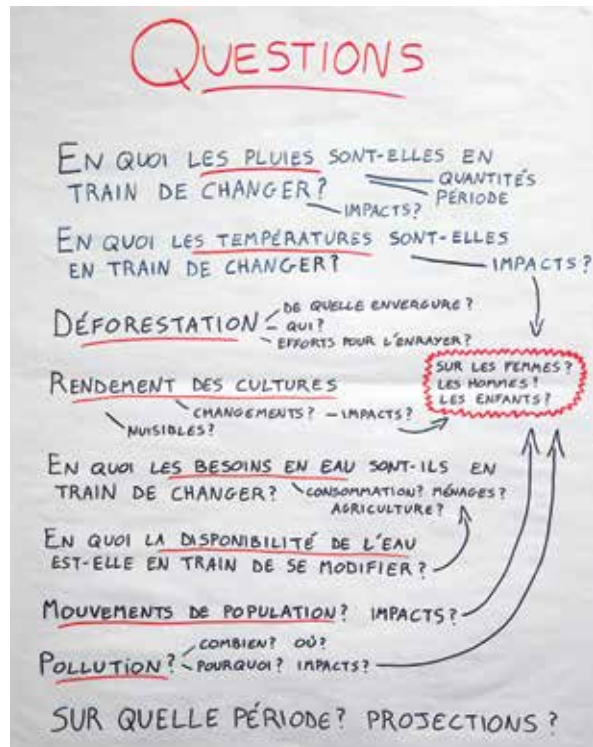 QUESTIONS
EN QUOI LES PLUIES SONT-ELLES EN
TRAIN DE CHANGER?
QUANTITÉS
PÉRIODE
IMPACTS?
EN QUOI LES TEMPÉRATURES SONT-ELLES
EN TRAIN DE CHANGER?
IMPACTS?
DÉFORESTATION
DE QUELLE ENVERGURE?
QUI?
EFFORTS POUR L'ENRAYER?
SUR LES FEMMES?
LES HOMMES?
LES ENFANTS?
RENDEMENT DES CULTURES
CHANGEMENTS? – IMPACTS?
NUISIBLES?
EN QUOI LES BESOINS EN EAU SONT-ILS EN
TRAIN DE CHANGER?
CONSOMMATION? MÉNAGES?
AGRICULTURE?
EN QUOI LA DISPONIBILITÉ DE L'EAU
EST-ELLE EN TRAIN DE SE MODIFIER?
MOUVEMENTS DE POPULATION? IMPACTS?
POLLUTION?
COMBIEN? OÙ?
POURQUOI? IMPACTS?
SUR QUELLE PÉRIODE? PROJECTIONS?